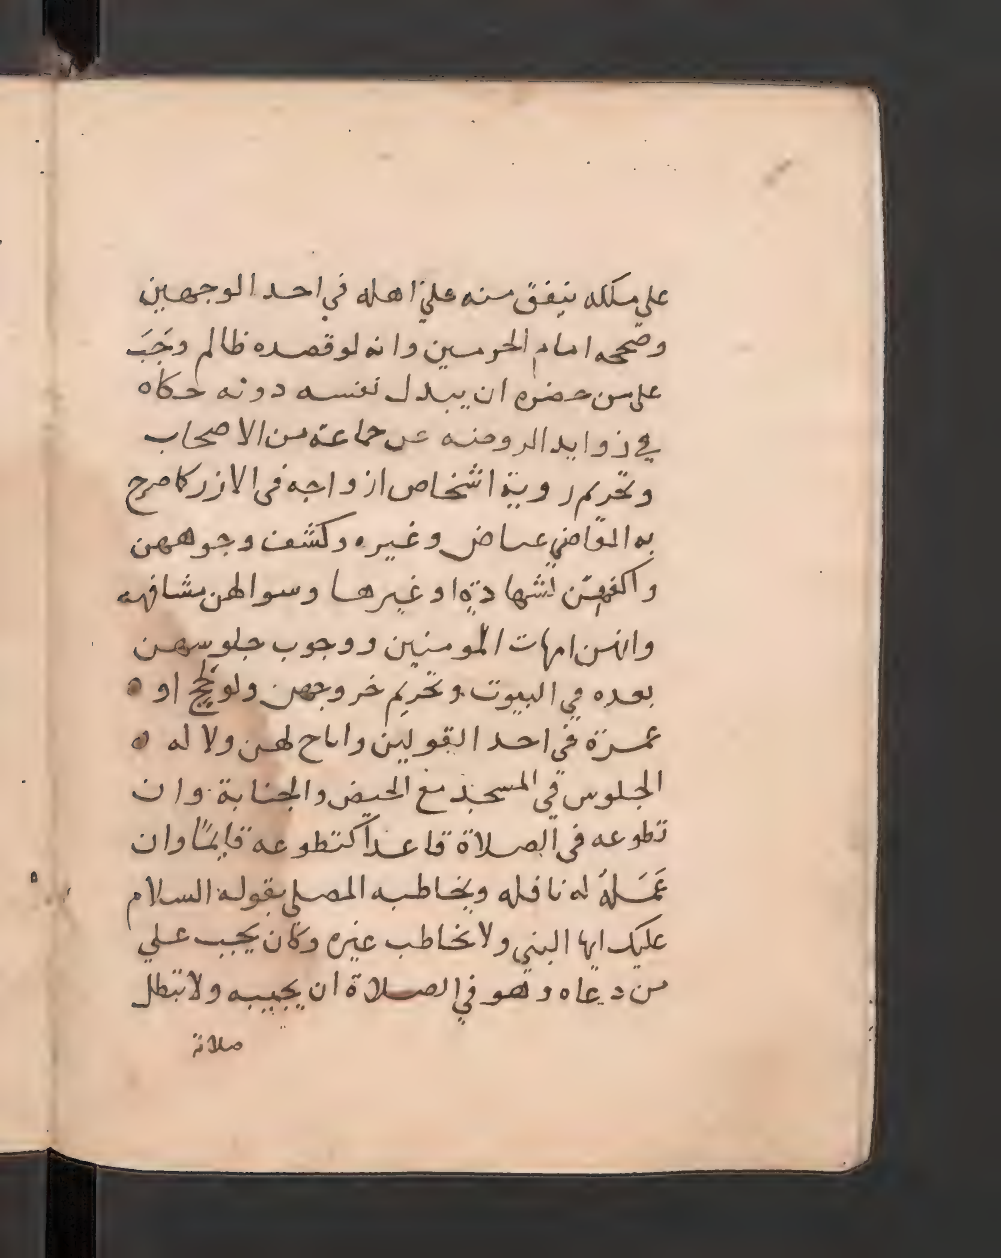 على ملكه ينفق منه على اهله في احد الوجهين
وصححه امام الحرمين وانه لو قصده ظالم وَجَبَ
على من حضره ان يبدل نفسه دونه حكاه
في زوايد الروضه عن جماعة من الاصحاب
وتحريم روية اشخاص ازواجه في الازر كما صرح
به القاضي عياض وغيره وكشف وجوههن
واكفهن لشهادة او غيرها وسوالهن مشافهه
وانهن امهات المومنين ووجوب جلوسهن
بعده في البيوت وتحريم خروجهن ولو لحج او ه
عمرة في احد القولين واباح لهن ولا له ه
الجلوس في المسجد مع الحيض والجنابة وان
تطوعه في الصلاة قاعداً كتطوعه قايمًا وان
عَمَلهُ له نافله ويخاطبه المصلي بقوله السلام
عليك ايها النبي ولا يخاطب غيره وكان يجب علي
من دعاه وهو في الصلاة ان يجيبه ولا تبطل
صلاته